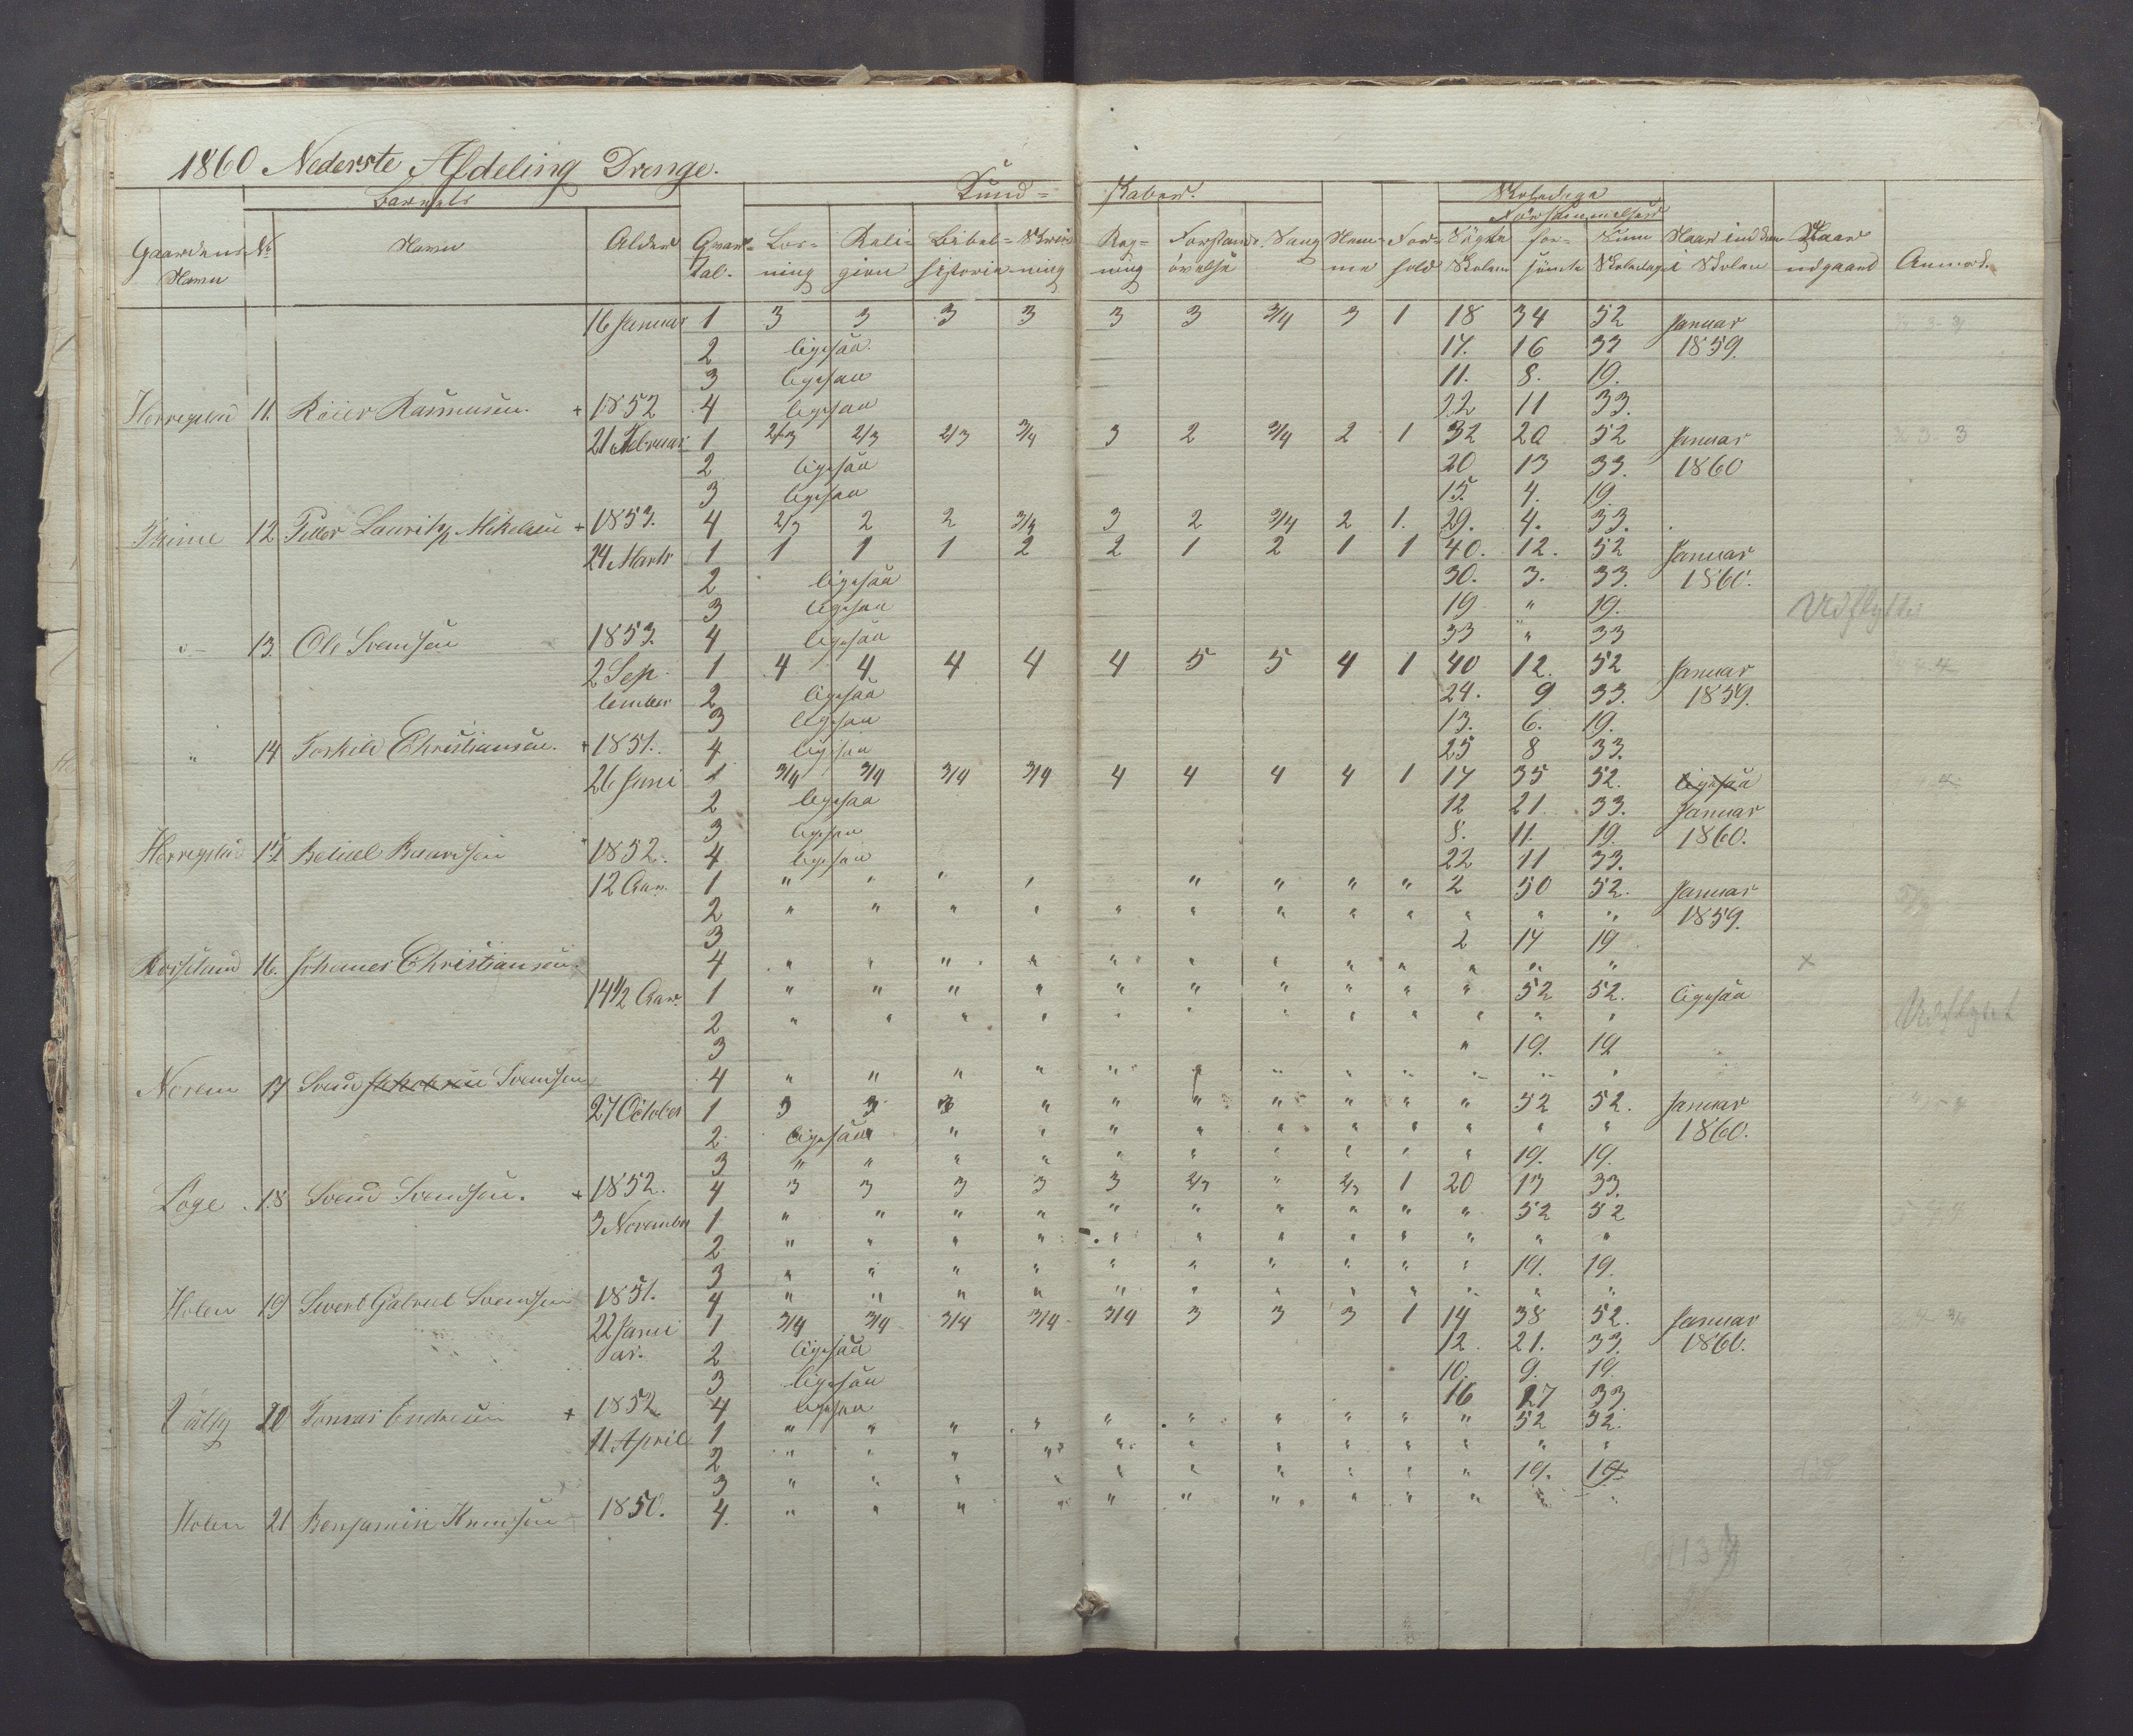 1860 Nederste Afdeling Drenge.
Barnets Kund= skaber. Skoledage
Forsømmelser
Gaardens Navn No Navn Alder Qvartal. Læsning Religion Bibelhistorie Skrivning Regning Forstandsøvelse Sang Nemme Forhold Søgte Skolen forsømte Sum Skoledage Naar ind i Skolen Naar udgaaed Anmærk.
16 Januar 1 3 3 3 3 3 3 3/4 3 1 18 34 52 Januar
2 ligesaa. 17. 16 33 1859.
3 ligesaa 11. 8. 19.
11. Rasmussen. + 1852 4 ligesaa 22 11 33.
21 Februar 1 2/3 2/3 2/3 3/4 3 2 3/4 2 1 32 20 52 Januar
2 ligesaa 20 13 33. 1860
3 ligesaa 15. 4. 19.
Thime 12 Peder Lauritz Mikelsen + 1853. 4 2/3 2 2 3/4 3 2 3/4 2 1. 29. 4. 33.
24 Marts 1 1 1 1 2 2 1 2 1 1 40. 12. 52 Januar
2 ligesaa 30. 3. 33. 1860.
3 ligesaa 19 " 19. Udflyttet
13. Ole Svendsen 1853 4 ligesaa 33 " 33
2 Sep- 1 4 4 4 4 4 5 5 4 1 40 12. 52 Januar
tember 2 ligesaa 24. 9 33. 1859.
3 ligesaa 13. 6. 19.
" 14 Torkild Christiansen. + 1851. 4 ligesaa 25 8 33.
26 Juni 1 3/4 3/4 3/4 3/4 4 4 4 4 1 17 35 52. ligesaa
2 ligesaa 12 21. 33. Januar
3 ligesaa 8. 11. 19. 1860.
15 1852. 4 ligesaa 22 11 33.
12 Aar. 1 " " " " " " " " 2 50 52. Januar
2 " " " " " " " " " " " " 1859.
3 2 17 19
16. Johanes Christiansen. 4 " " " " " " " " " " " " x
14 1/2 Aar. 1 " " " " " " " " " " 52 52. ligesaa
2 " " " " " " " " " " " " Udflyttet
3 " 19. 19
Norem 17 Svend Svendsen 4 " " " " " " " " " " " "
27 October 1 3 3 3 " " " " " " " 52 52. Januar
2 ligesaa " " " " " " " " " " 1860.
3 " " " " " " " " " " 19. 19.
Loge 18 Svend Svendsen. + 1852. 4 3 3 3 3 3 2/3 " 2/3 1 20 13 33.
3 November 1 " " " " " " " " " " 52 52
2 " " " " " " " " " " " "
3 " " " " " " " " " " 19. 19.
Holen 19 Sivert Gabriel Svendsen 1851. 4 " " " " " " " " " " " "
22 Janu 1 3/4 3/4 3/4 3/4 3/4 3 3 3 1 14 38 52. Januar
ar. 2 ligesaa 12. 21. 33. 1860.
3 ligesaa 10. 9. 19.
20 Tomas Endresen + 1852 4 ligesaa 16 17 33
11. April 1 " " " " " " " " " " 52 52.
2 " " " " " " " " " " " "
3 " " " " " " " " " " 19. 19.
Holen 21 Benjamin Knudsen 1850. 4. " " " " " " " " " " " "